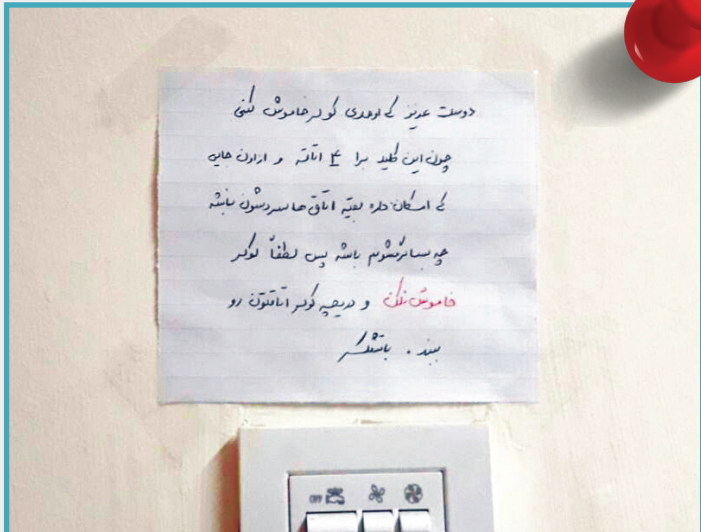 دوست عزیز که اومدی کولر خاموش کنی
چون این کلید برا ۴ اتاقه و از اون جایی
که امکان داره بقیه اتاق ها سردشون نباشه
چه بسا گرمشونم باشه پس لطفاً کولر
خاموش نکن و دریچه کولر اتاقتون رو
ببند . باتشکر
OFF